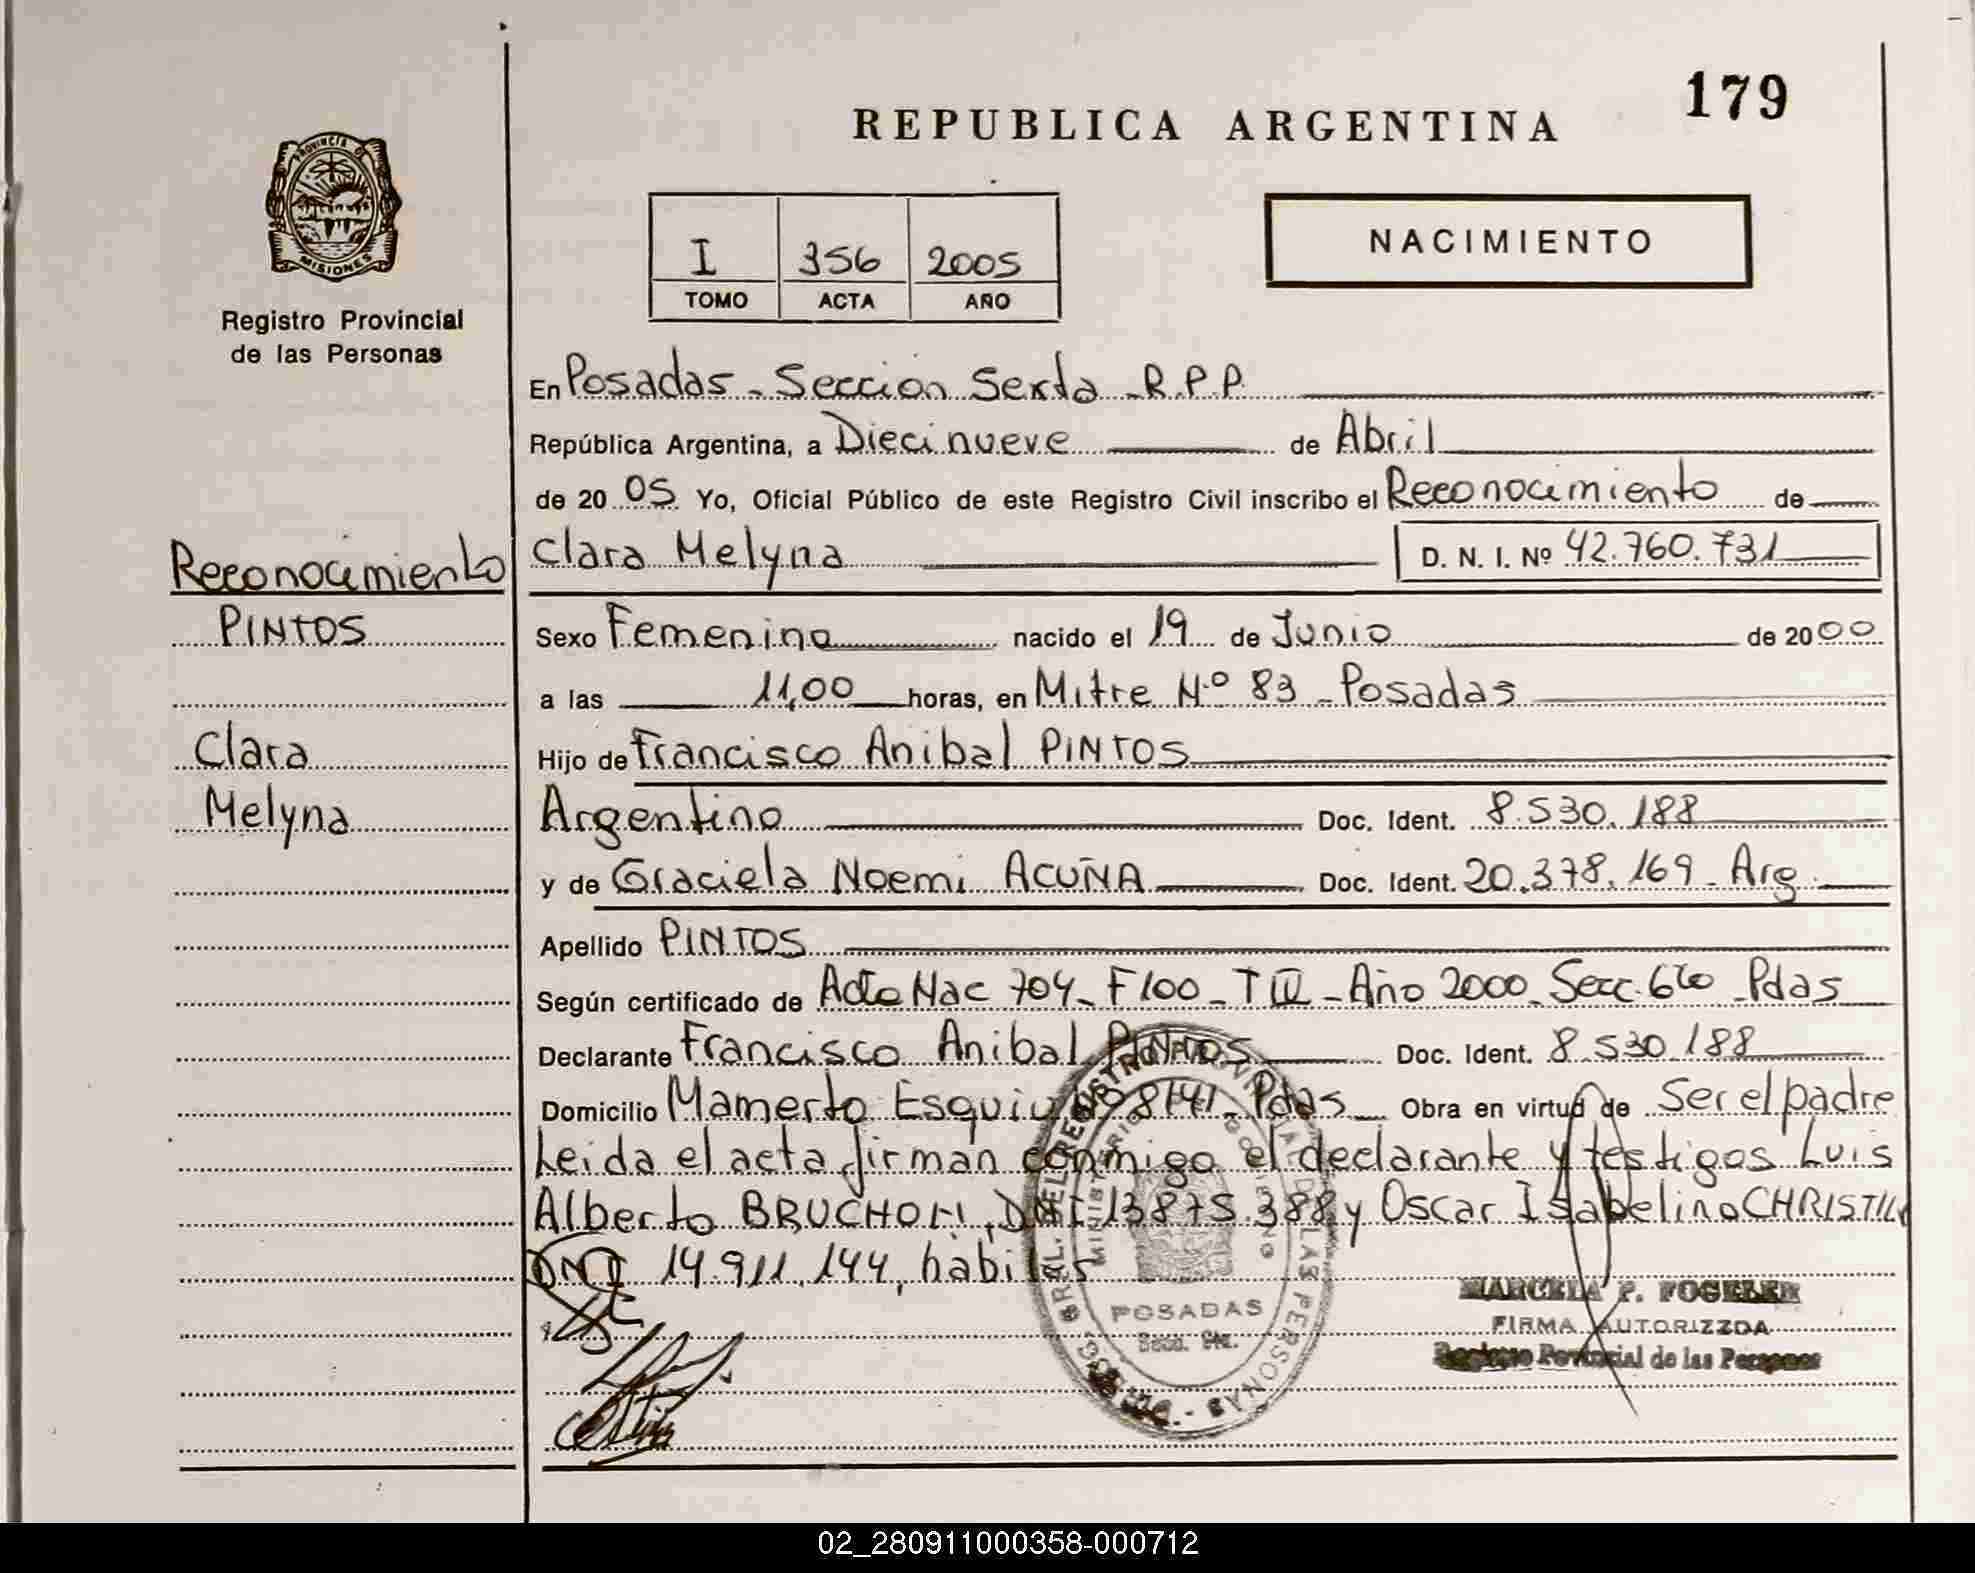 179
REPUBLICA ARGENTINA
PROVINCIA DE
MISIONES
Registro Provincial
de las Personas
I 356 2005
TOMO ACTA AÑO
NACIMIENTO
En Posadas - Seccion Sexta - R.P.P.
República Argentina, a Diecinueve de Abril
de 20 05 Yo, Oficial Público de este Registro Civil inscribo el Reconocimiento de
Clara Melyna D. N. I. Nº 42.760.731
Reconocimiento
PINTOS
Clara
Melyna
Sexo Femenino nacido el 19 de Junio de 2000
a las 11,00 horas, en Mitre N.º 83 - Posadas
Hijo de Francisco Anibal PINTOS
Argentino Doc. Ident. 8.530.188
y de Graciela Noemi ACUÑA Doc. Ident. 20.378.169 - Arg.
Apellido PINTOS
Según certificado de Acta Nac 704 - F 100 - T II - Año 2000 - Secc. 6ta - Pdas
Declarante Francisco Anibal PINTOS Doc. Ident. 8.530.188
Domicilio Mamerto Esquiu Nº 8141 - Pdas Obra en virtud de Ser el padre
Leida el acta firman conmigo el declarante y testigos Luis
Alberto DNI 13.875.388 y Oscar Isabelino
DNI 14.911.144, habiles
POSADAS
Secc. 6ta.
MARCELA P. FOGELER
FIRMA AUTORIZZDA
Registro Povincial de las Personas
02_280911000358-000712